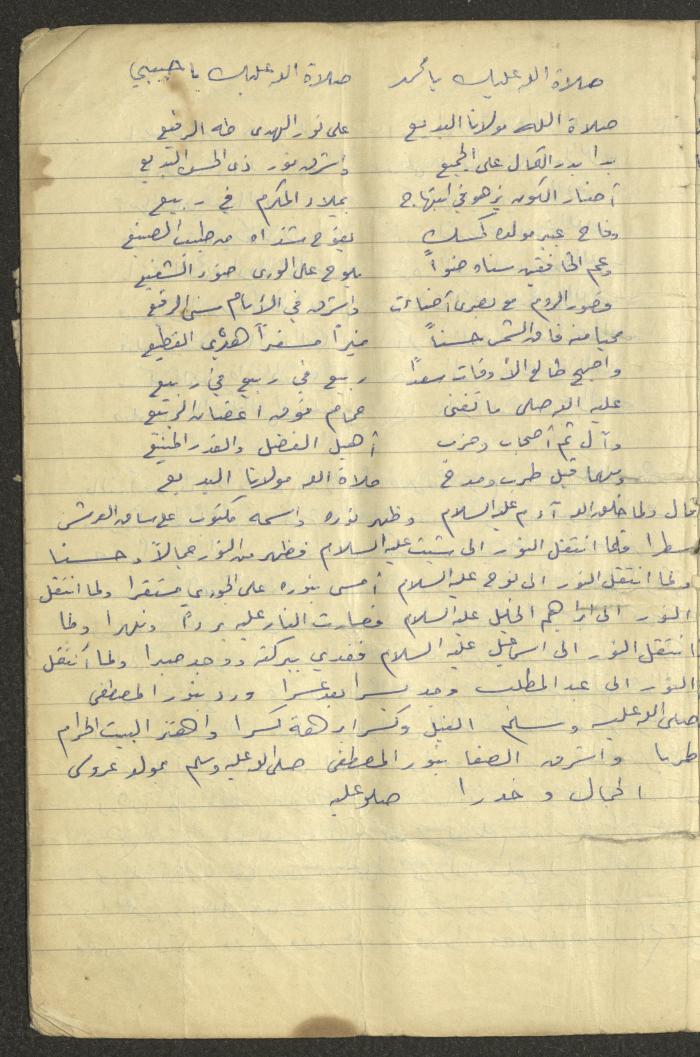 صلاة الله عليك يا محمد صلاة الله عليك يا حبيبي
صلاة الله مولانا البديع على نور الهدى طه الرفيع
بدا بدر الكمال على الجميع واشرق نور ذي الحسن البديع
أضاء الكون يزهو في ابتهاج بميلاد المكرم في ربيع
وفاح عبير مولده كمسك يفوح شذاه من طيب الصنيع
وعم الخافقين سناه ضوأ يلوح على الورى ضوء الشفيع
قصور الروم مع بصرى أضاءت واشرق في الأنام سنى الرفيع
محيا منه فاق الشمس حسناً منيراً مسفراً هدي القطيع
واصبح طالع الأوقات سعداً ربيع في ربيع في ربيع
عليه الله صلى ما تغنى حمام فوق اغصان الربيع
وآل ثم أصحاب وحزب أهيل الفضل والقدر المنيع
ومهما قيل طرب ومدح صلاة الله مولانا البديع
قال ولما خلق الله آدم عليه السلام وظهر نوره واسمه مكتوب على ساق العرش
سطرا فلما انتقل النور الى شيت عليه السلام فظهر من النور جمالاً وحسنا
ولما انتقل النور الى نوح عليه السلام أمسى بنوره على الجودي مستقرا ولما انتقل
النور الى ابراهيم الخليل عليه السلام فصارت النار عليه برداً ونهرا ولما
انتقل النور الى اسماعيل عليه السلام ففدي ببركته ووجد صبرا ولما أنتقل
النور الى عبد المطلب وجد يسرا بعد عسرا ورد بنور المصطفى
صلى الله عليه وسلم الفيل وكسر ابرهة كسرا واهتز البيت الحرام
طربا واشرق الصفا بنور المصطفى صلى الله عليه وسلم مولد عروس
الجمال و خدرا صلو عليه